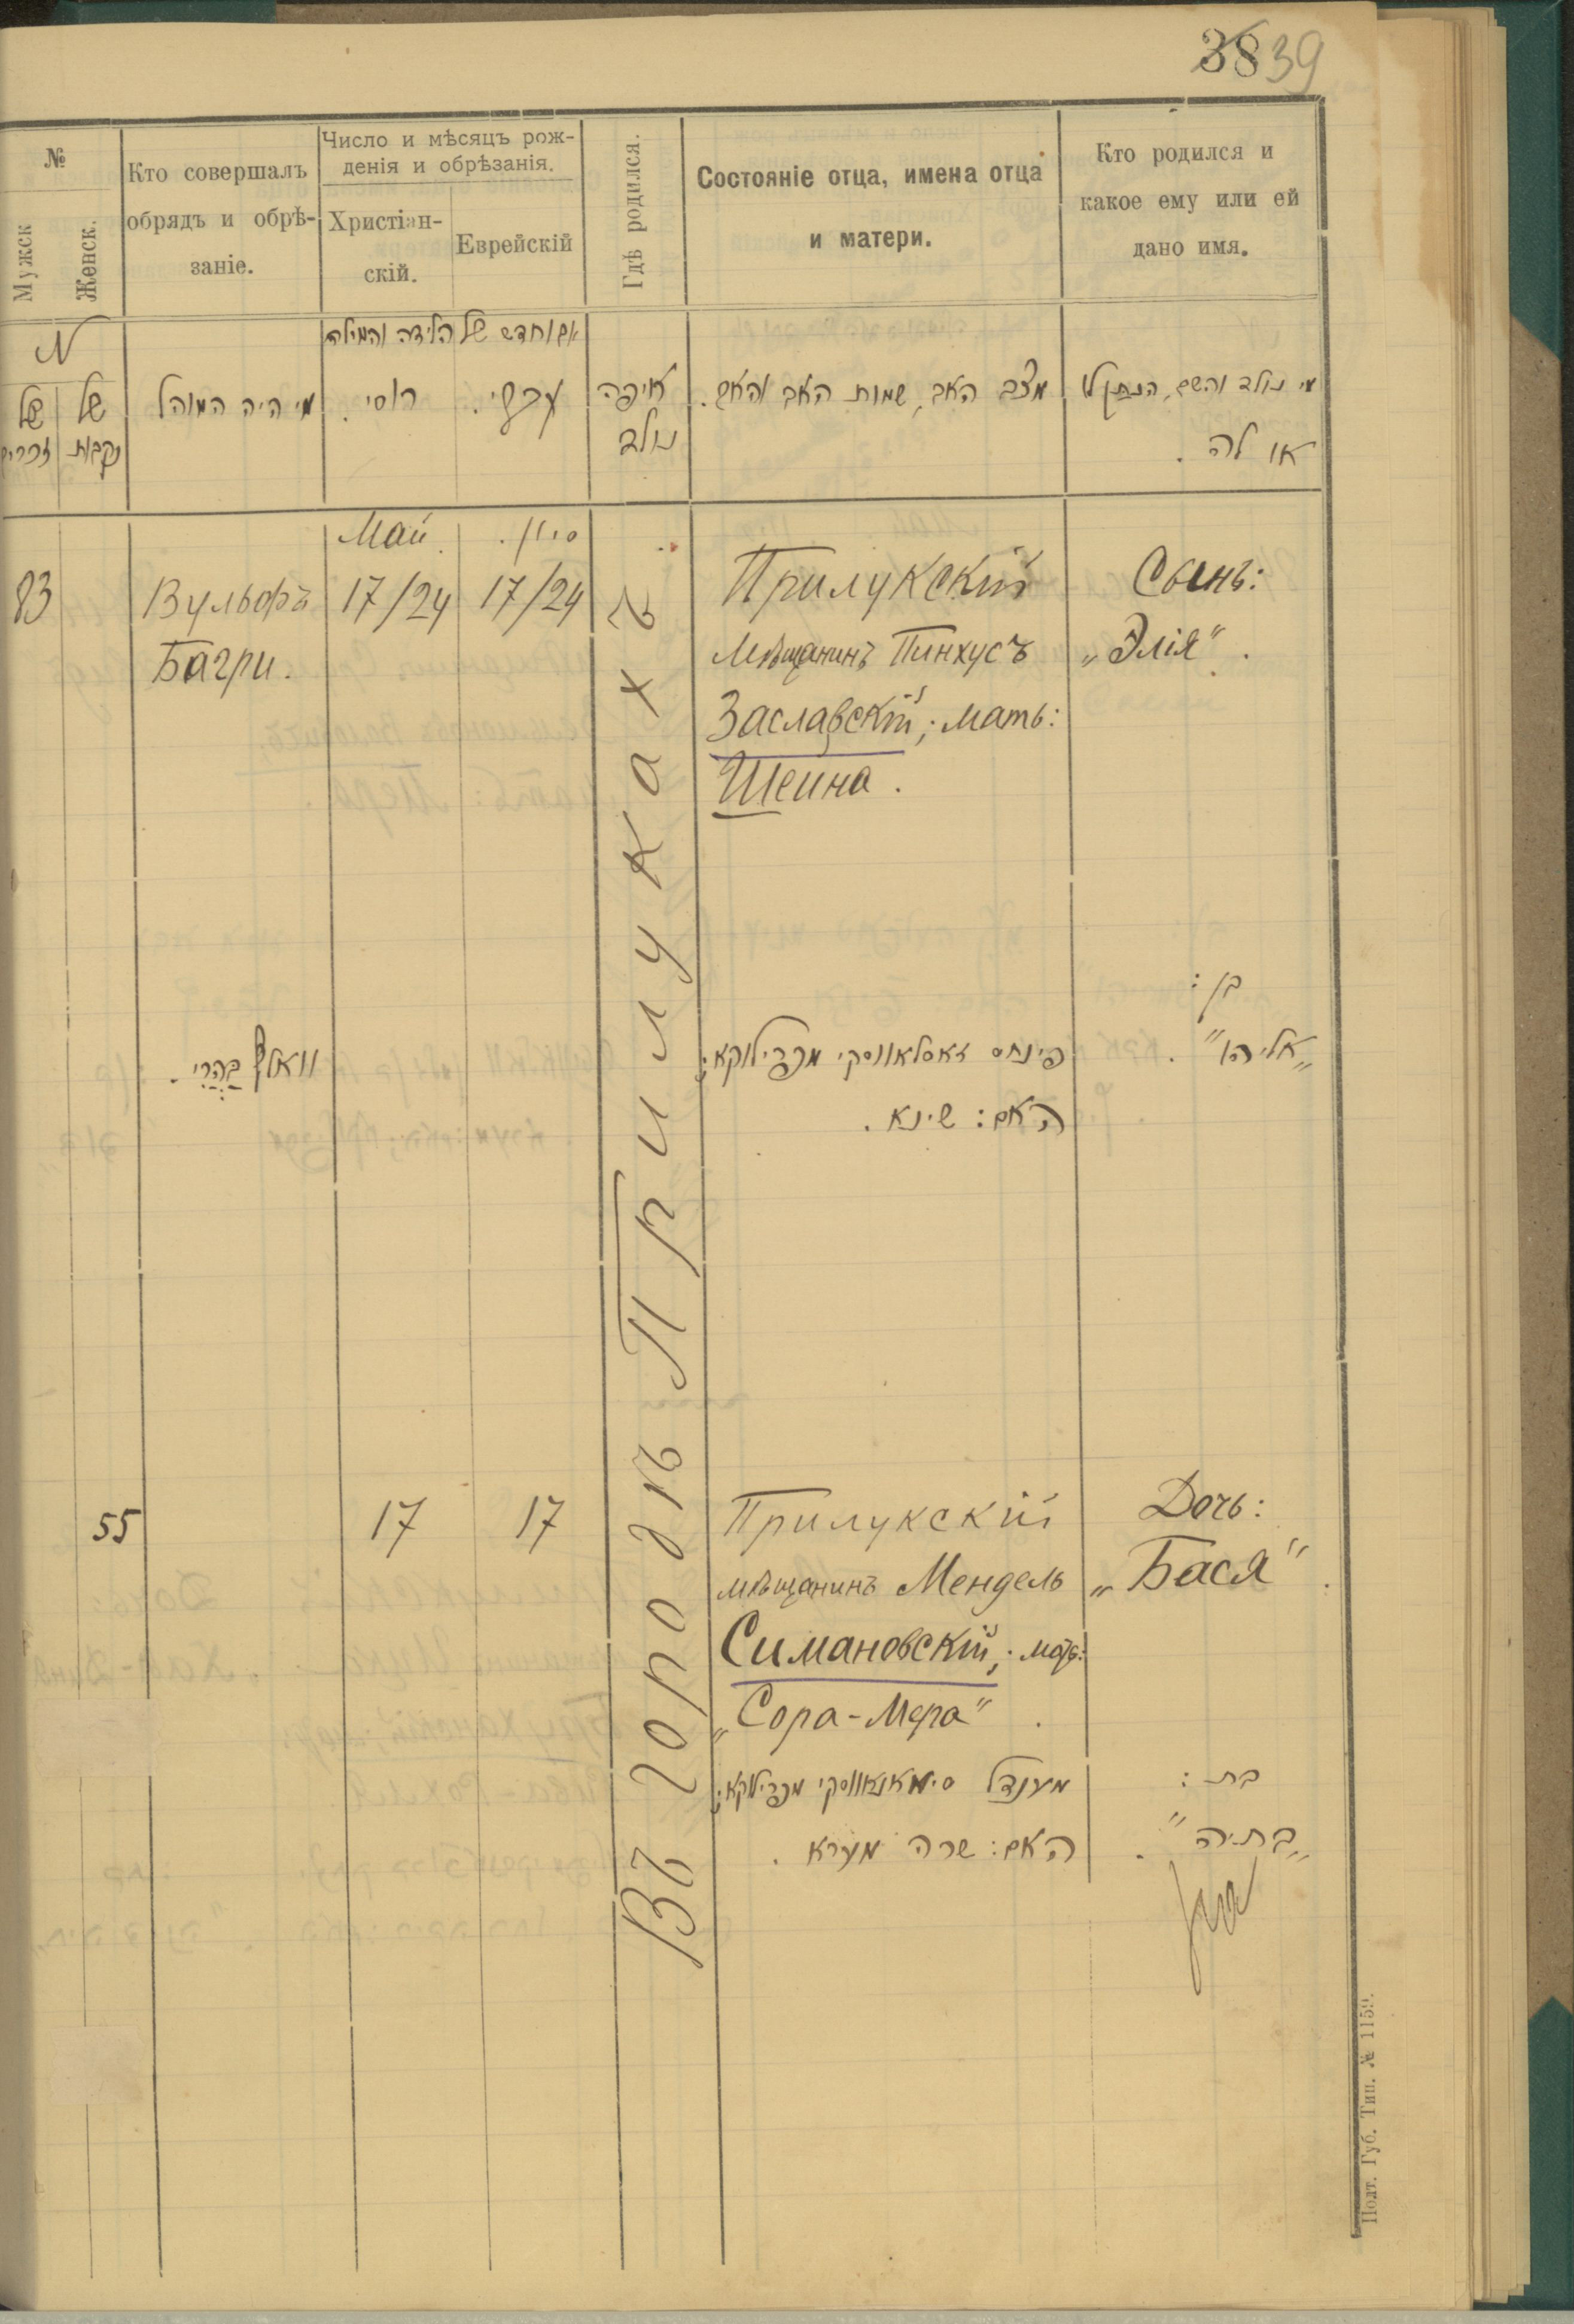 38 39
№
Мужск
Женск.
Кто совершалъ
обрядъ и обрѣ-
заніе.
Число и мѣсяцъ рож-
денія и обрѣзанія.
Христіан-
скій.
Еврейскій
Гдѣ родился.
Состояніе отца, имена отца
и матери.
Кто родился и
какое ему или ей
дано имя.
N
של
זכרים
של
נקבות
מי היה המוהל
יום וחדש של הלידה והמילה
רוסי.
עברי.
איפה
נולד
מצב האב, שמות האב והאם.
מי נולד והשם הנתן לו
או לה.
83
Вульфъ
Багри.
Май
17/24
סיון.
17/24
Въ городѣ Прилукахъ
Прилукскій
мѣщанинъ Пинхусъ
Заславскій; мать:
Шейна.
Сынъ:
„Элія".
וואלף בהרי.
פינחס זאסלאווסקי מפרילוקא;
האם: שינא.
בן:
„אליהו".
55
17
17
Прилукскій
мѣщанинъ Мендель
Симановскій; мать:
„Сора-Мера".
Дочь:
„Бася".
מענדל סימאנאווסקי מפרילוקא;
האם: שרה מערא.
בת:
„בתיה".
Полт. Губ. Тип. № 1159.